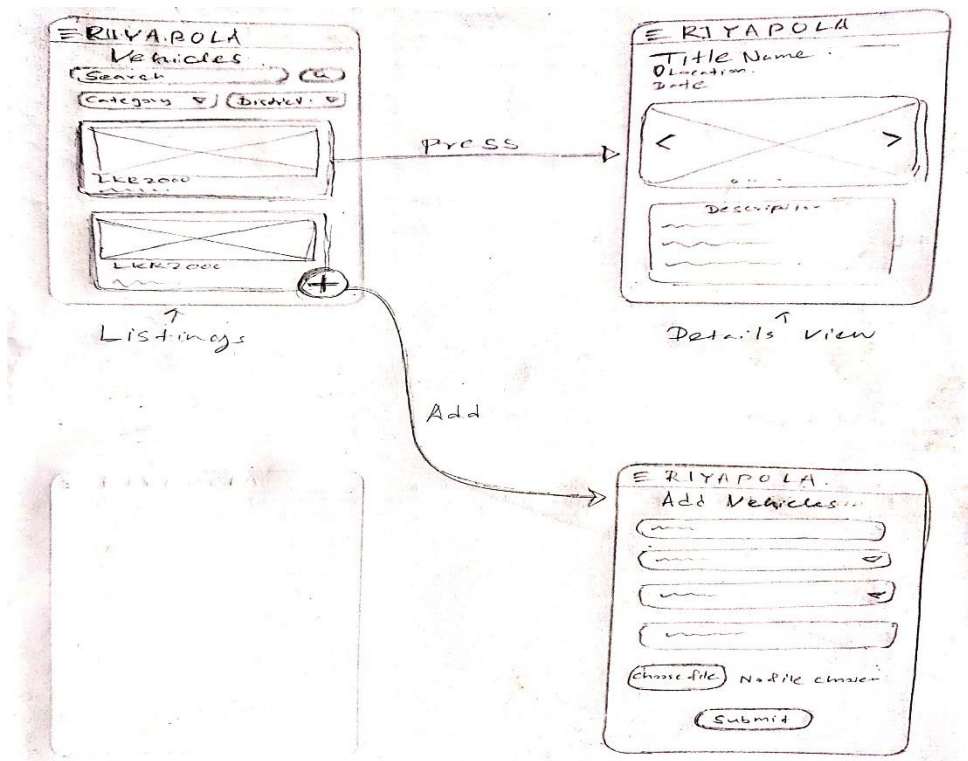 RIYAPOLA
Vehicles
Search
Category
District
LKR 2000
LKR 2000
Listings
Press
RIYAPOLA
Title Name
Location
Date
Description
Details view
Add
RIYAPOLA
Add Vehicles
Choose file No file chosen
Submit